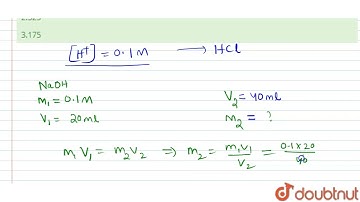 3.175
[H⁺] = 0.1 M ⟶ HCl
NaOH
M₁ = 0.1M V₂ = 40 ml
V₁ = 20ml M₂ = ?
M₁V₁ = M₂V₂ ⇒ M₂ = M₁V₁/V₂ = 0.1×20/40
doubtnut